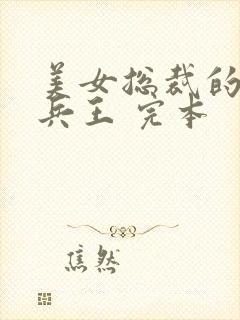 美女总裁的
兵王 完本
焦然